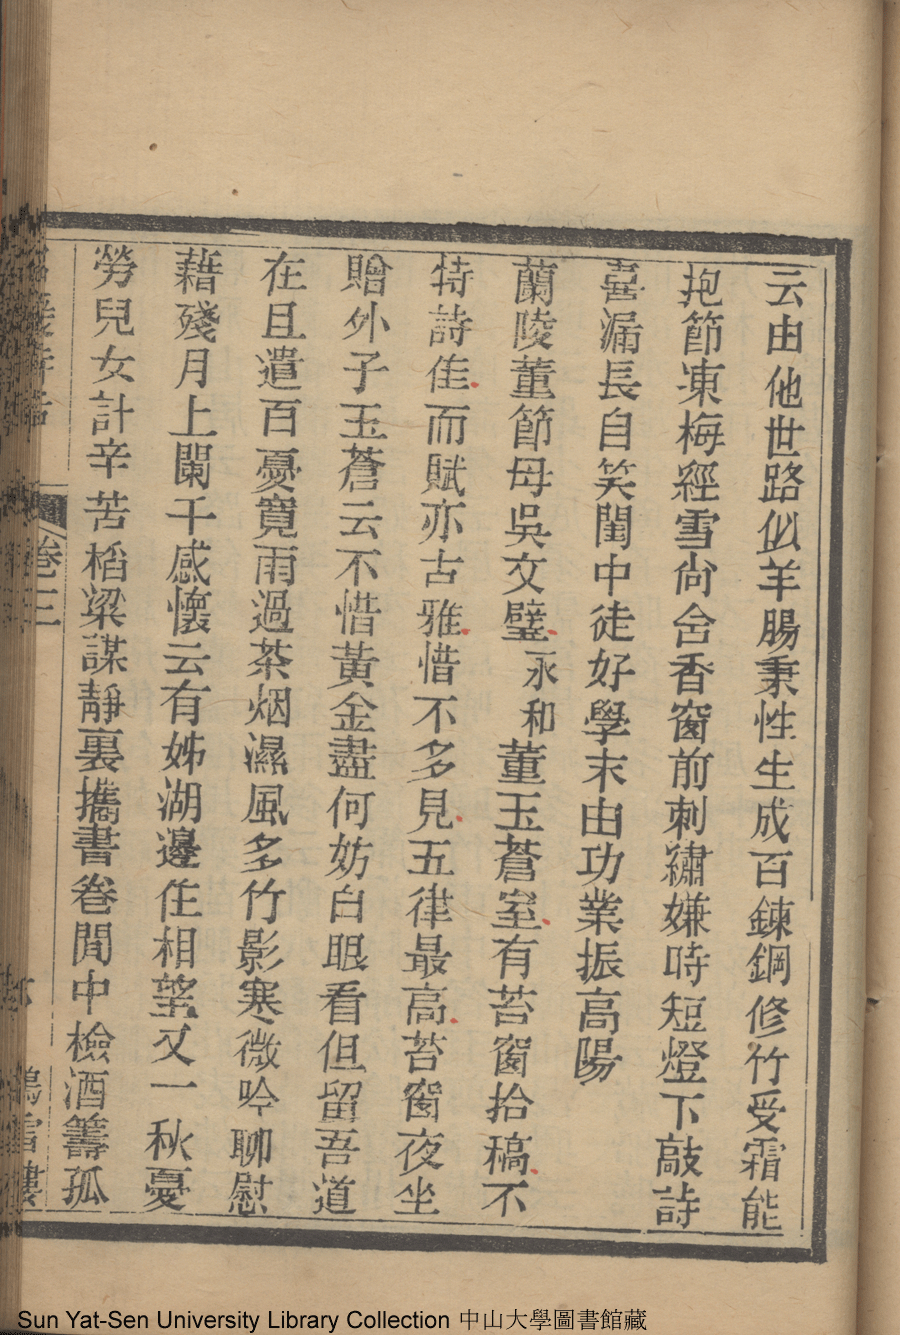 云由他世路似羊腸秉性生成百鍊鋼修竹受霜能
抱節凍梅經雪尙含香窗前刺繡嫌時短燈下敲詩
喜漏長自笑閨中徒好學末由功業振高陽
蘭陵董節母吳文璧永和董玉蒼室有苔窗拾稿不
特詩佳而賦亦古雅惜不多見五律最高苔窗夜坐
贈外子玉蒼云不惜黃金盡何妨白眼看但留吾道
在且遣百憂寬雨過茶烟濕風多竹影寒微吟聊慰
藉殘月上闌干感懷云有姊湖邊住相望又一秋憂
勞兒女計辛苦稻粱謀靜裏攜書卷閒中檢酒籌孤
卷三
Sun Yat-Sen University Library Collection 中山大學圖書館藏